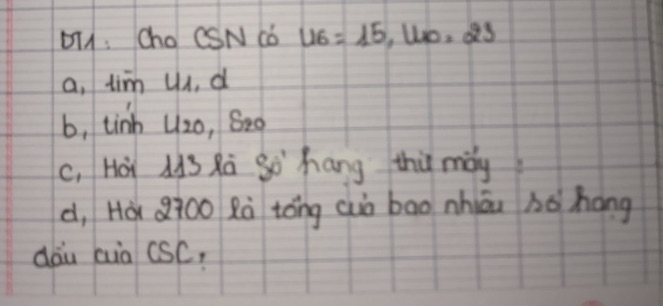 DT1: Cho CSN có U6 = 15, U10 = 23
a, tìm U1, d
b, tính U20, S20
c, Hỏi 113 là số hạng thứ mấy :
d, Hỏi 2700 là tổng của bao nhiêu số hạng
đầu của CSC?